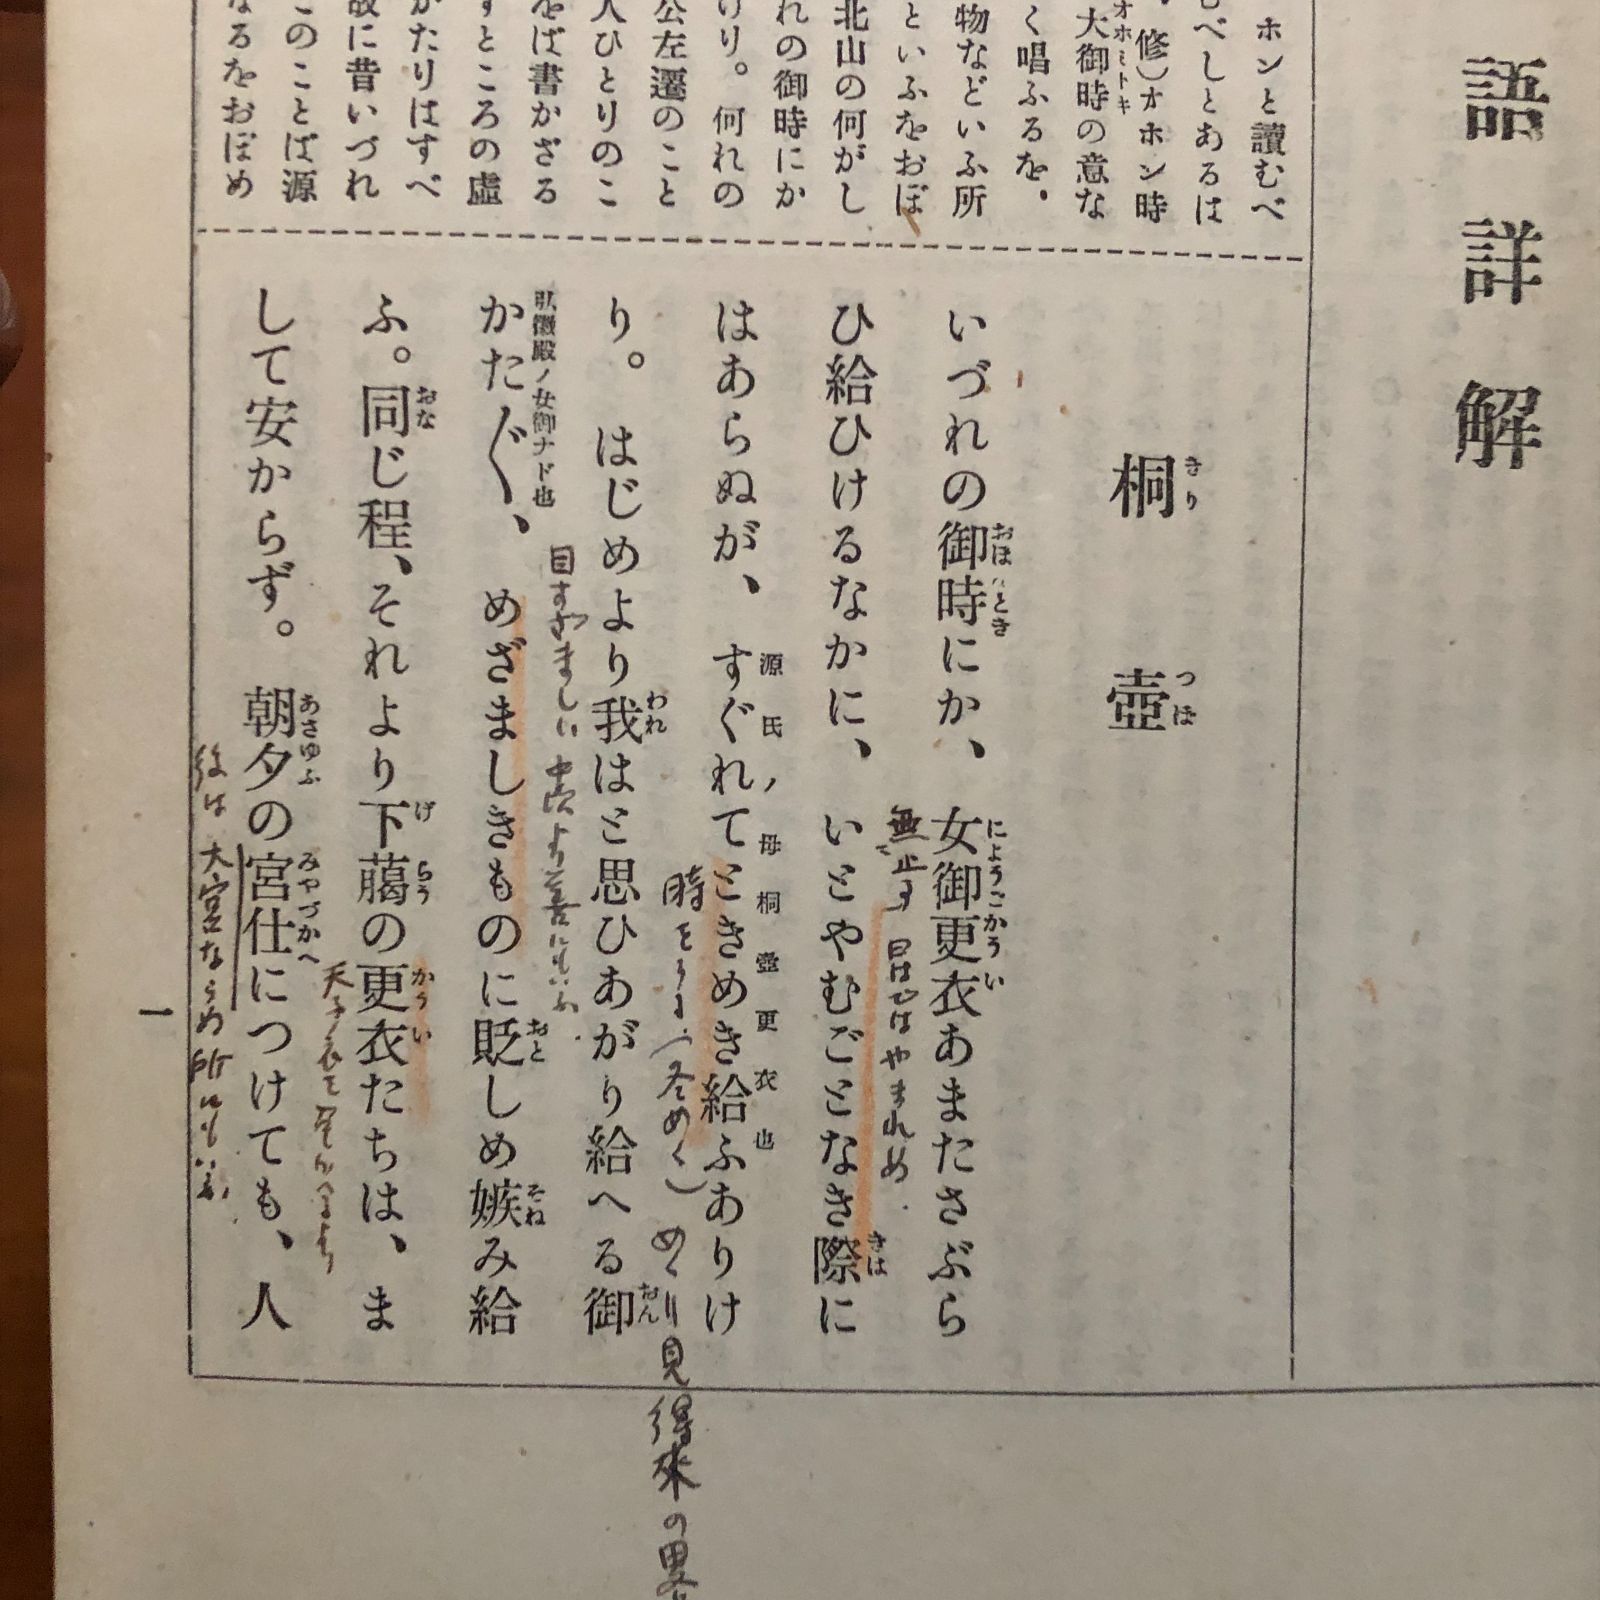 語詳解
ホンと讀むべ
むべしとあるは
修)オホン時
大御時の意な
オホミトキ
く唱ふるを。
物などいふ所
といふをおぼ
北山の何がし
れの御時にか
けり。何れの
公左遷のこと
人ひとりのこ
をば書かざる
すところの虛
かたりはすべ
故に昔いづれ
このことば源
なるをおぼめ
桐壺
きりつほ
いづれの御時にか、女御更衣あまたさぶら
おほんとき
にようごかうい
ひ給ひけるなかに、いとやむごとなき際に
きは
無止
昔はやまれぬ
はあらぬが、すぐれてときめき給ふありけ
源氏ノ母桐壺更衣也
時を
(冬めく)めく=見得來の畧
り。はじめより我はと思ひあがり給へる御
われ
おん
かた〴〵、めざましきものに貶しめ嫉み給
弘徽殿ノ女御ナド也
おと
そね
目すさましい
ふ。同じ程、それより下﨟の更衣たちは、ま
おな
げらう
かうい
天子ノ衣を
して安からず。朝夕の宮仕につけても、人
あさゆふ
みやづかへ
後は大宮ならぬ所にもいふ
一